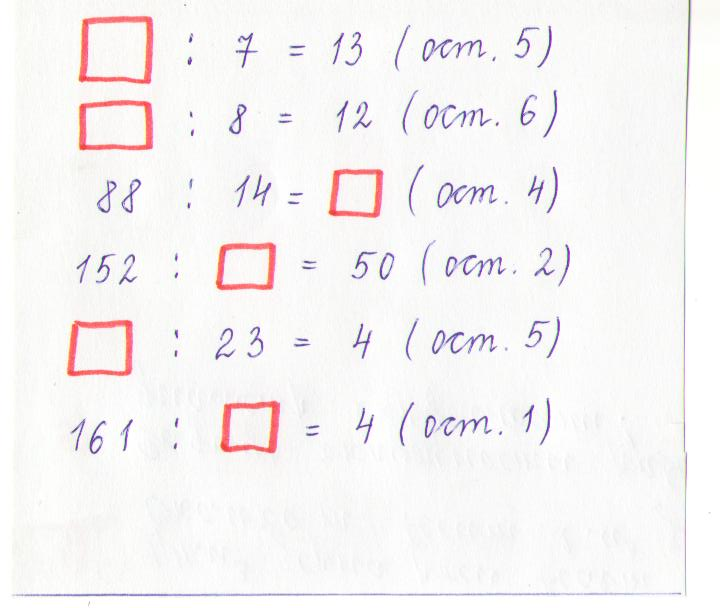 □ : 7 = 13 (ост. 5)
□ : 8 = 12 (ост. 6)
88 : 14 = □ (ост. 4)
152 : □ = 50 (ост. 2)
□ : 23 = 4 (ост. 5)
161 : □ = 4 (ост. 1)